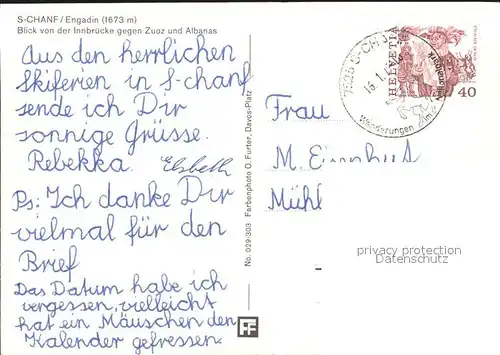 S-CHANF / Engadin (1673 m)
Blick von der Innbrücke gegen Zuoz und Albanas
Aus den herrlichen
Skiferien in S-chanf
sende ich Dir
sonnige Grüsse.
Rebekka. Elsbeth
Ps: Ich danke Dir
vielmal für den
Brief
Das Datum habe ich
vergessen, vielleicht
hat ein Mäuschen den
Kalender gefressen.
No. 029/303 Farbenphoto O. Furter, Davos-Platz
FF
7525 S-CH
16.1.
Wanderungen im Nationalpark
HELVETIA
40
Frau
M.
Mühl
privacy protection
Datenschutz